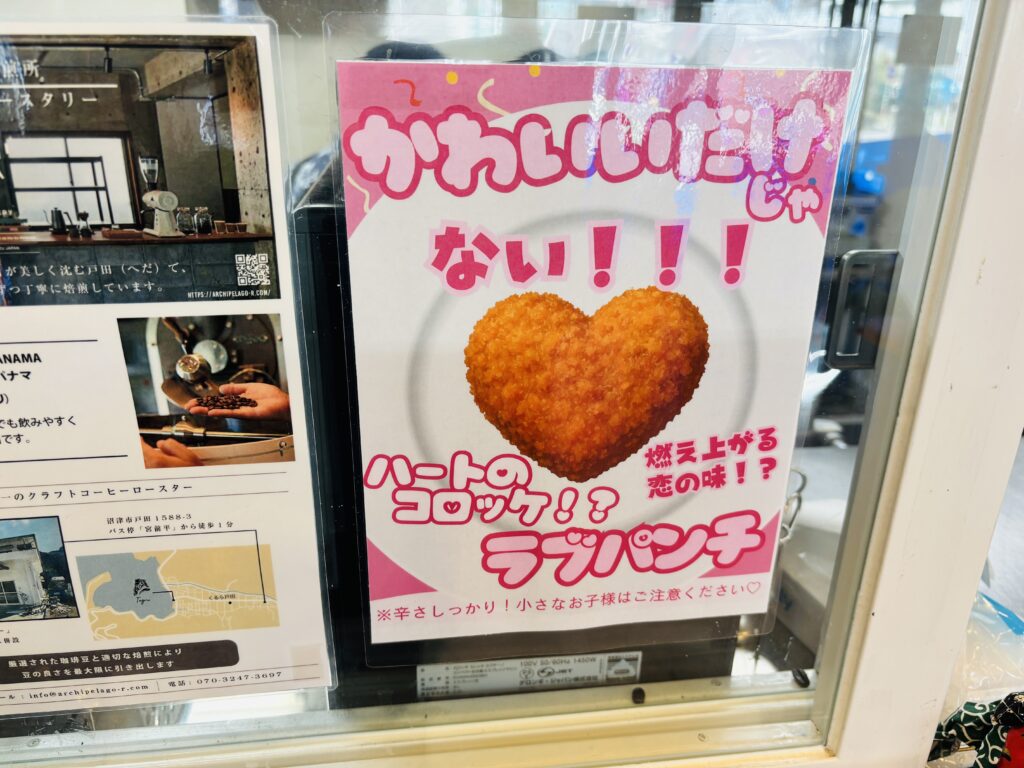 焙所
ースタリー
が美しく沈む戸田（へだ）で、
ずつ丁寧に焙煎しています。
HTTPS://ARCHIPELAGO-R.COM/
ANAMA
パナマ
でも飲みやすく
です。
ーのクラフトコーヒーロースター
沼津市戸田1588-3
バス停「宮前平」から徒歩1分
くるら戸田
厳選された珈琲豆と適切な焙煎により
豆の良さを最大限に引き出します
ール：info@archipelago-r.com 電話：070-3247-3697
かわいいだけ
じゃ
ない！！！
ハートの
コロッケ！？
燃え上がる
恋の味！？
ラブパンチ
※辛さしっかり！小さなお子様はご注意ください♡
100V 50-60Hz 1450W
デロンギ・ジャパン株式会社